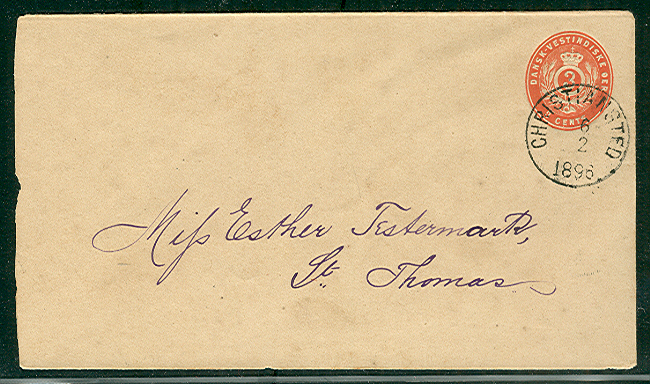 DANSK-VESTINDISKE OER
CENTS
CHRISTIANSTED
6
2
1896
Miſs Esther Testermark,
St. Thomas